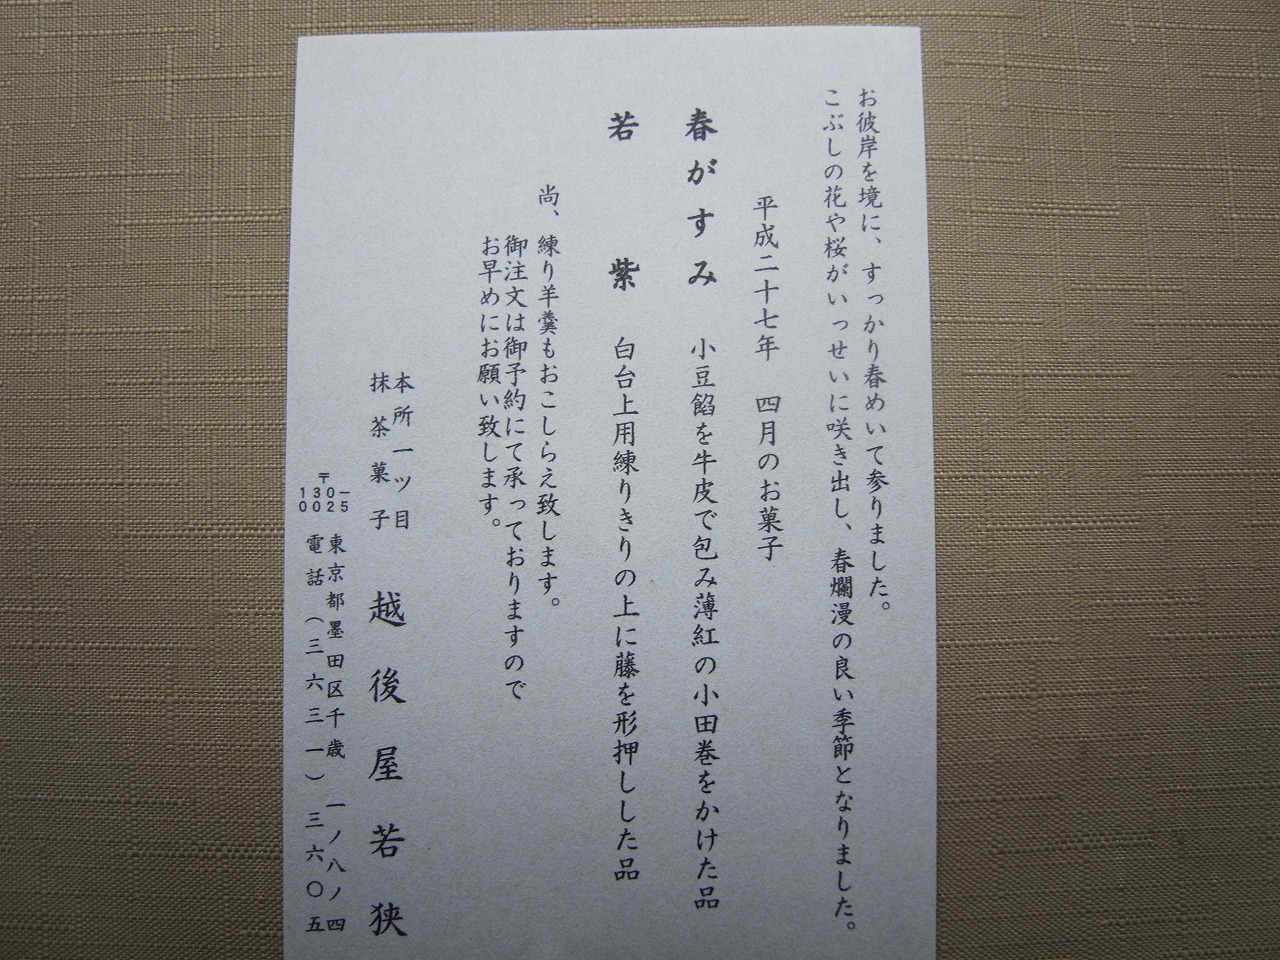 お彼岸を境に、すっかり春めいて参りました。
こぶしの花や桜がいっせいに咲き出し、春爛漫の良い季節となりました。
平成二十七年　四月のお菓子
春がすみ　小豆餡を牛皮で包み薄紅の小田巻をかけた品
若　紫　白台上用練りきりの上に藤を形押しした品
尚、練り羊羹もおこしらえ致します。
御注文は御予約にて承っておりますので
お早めにお願い致します。
本所一ツ目
抹茶菓子
越後屋若狭
〒130-0025
東京都墨田区千歳　一ノ八ノ四
電話（三六三一）三六〇五